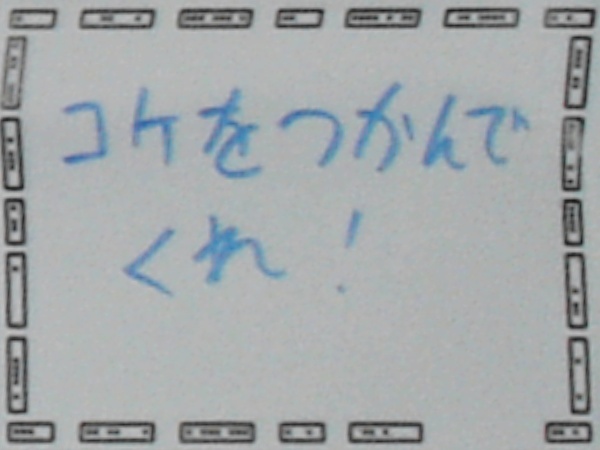 コケをつかんで
くれ!